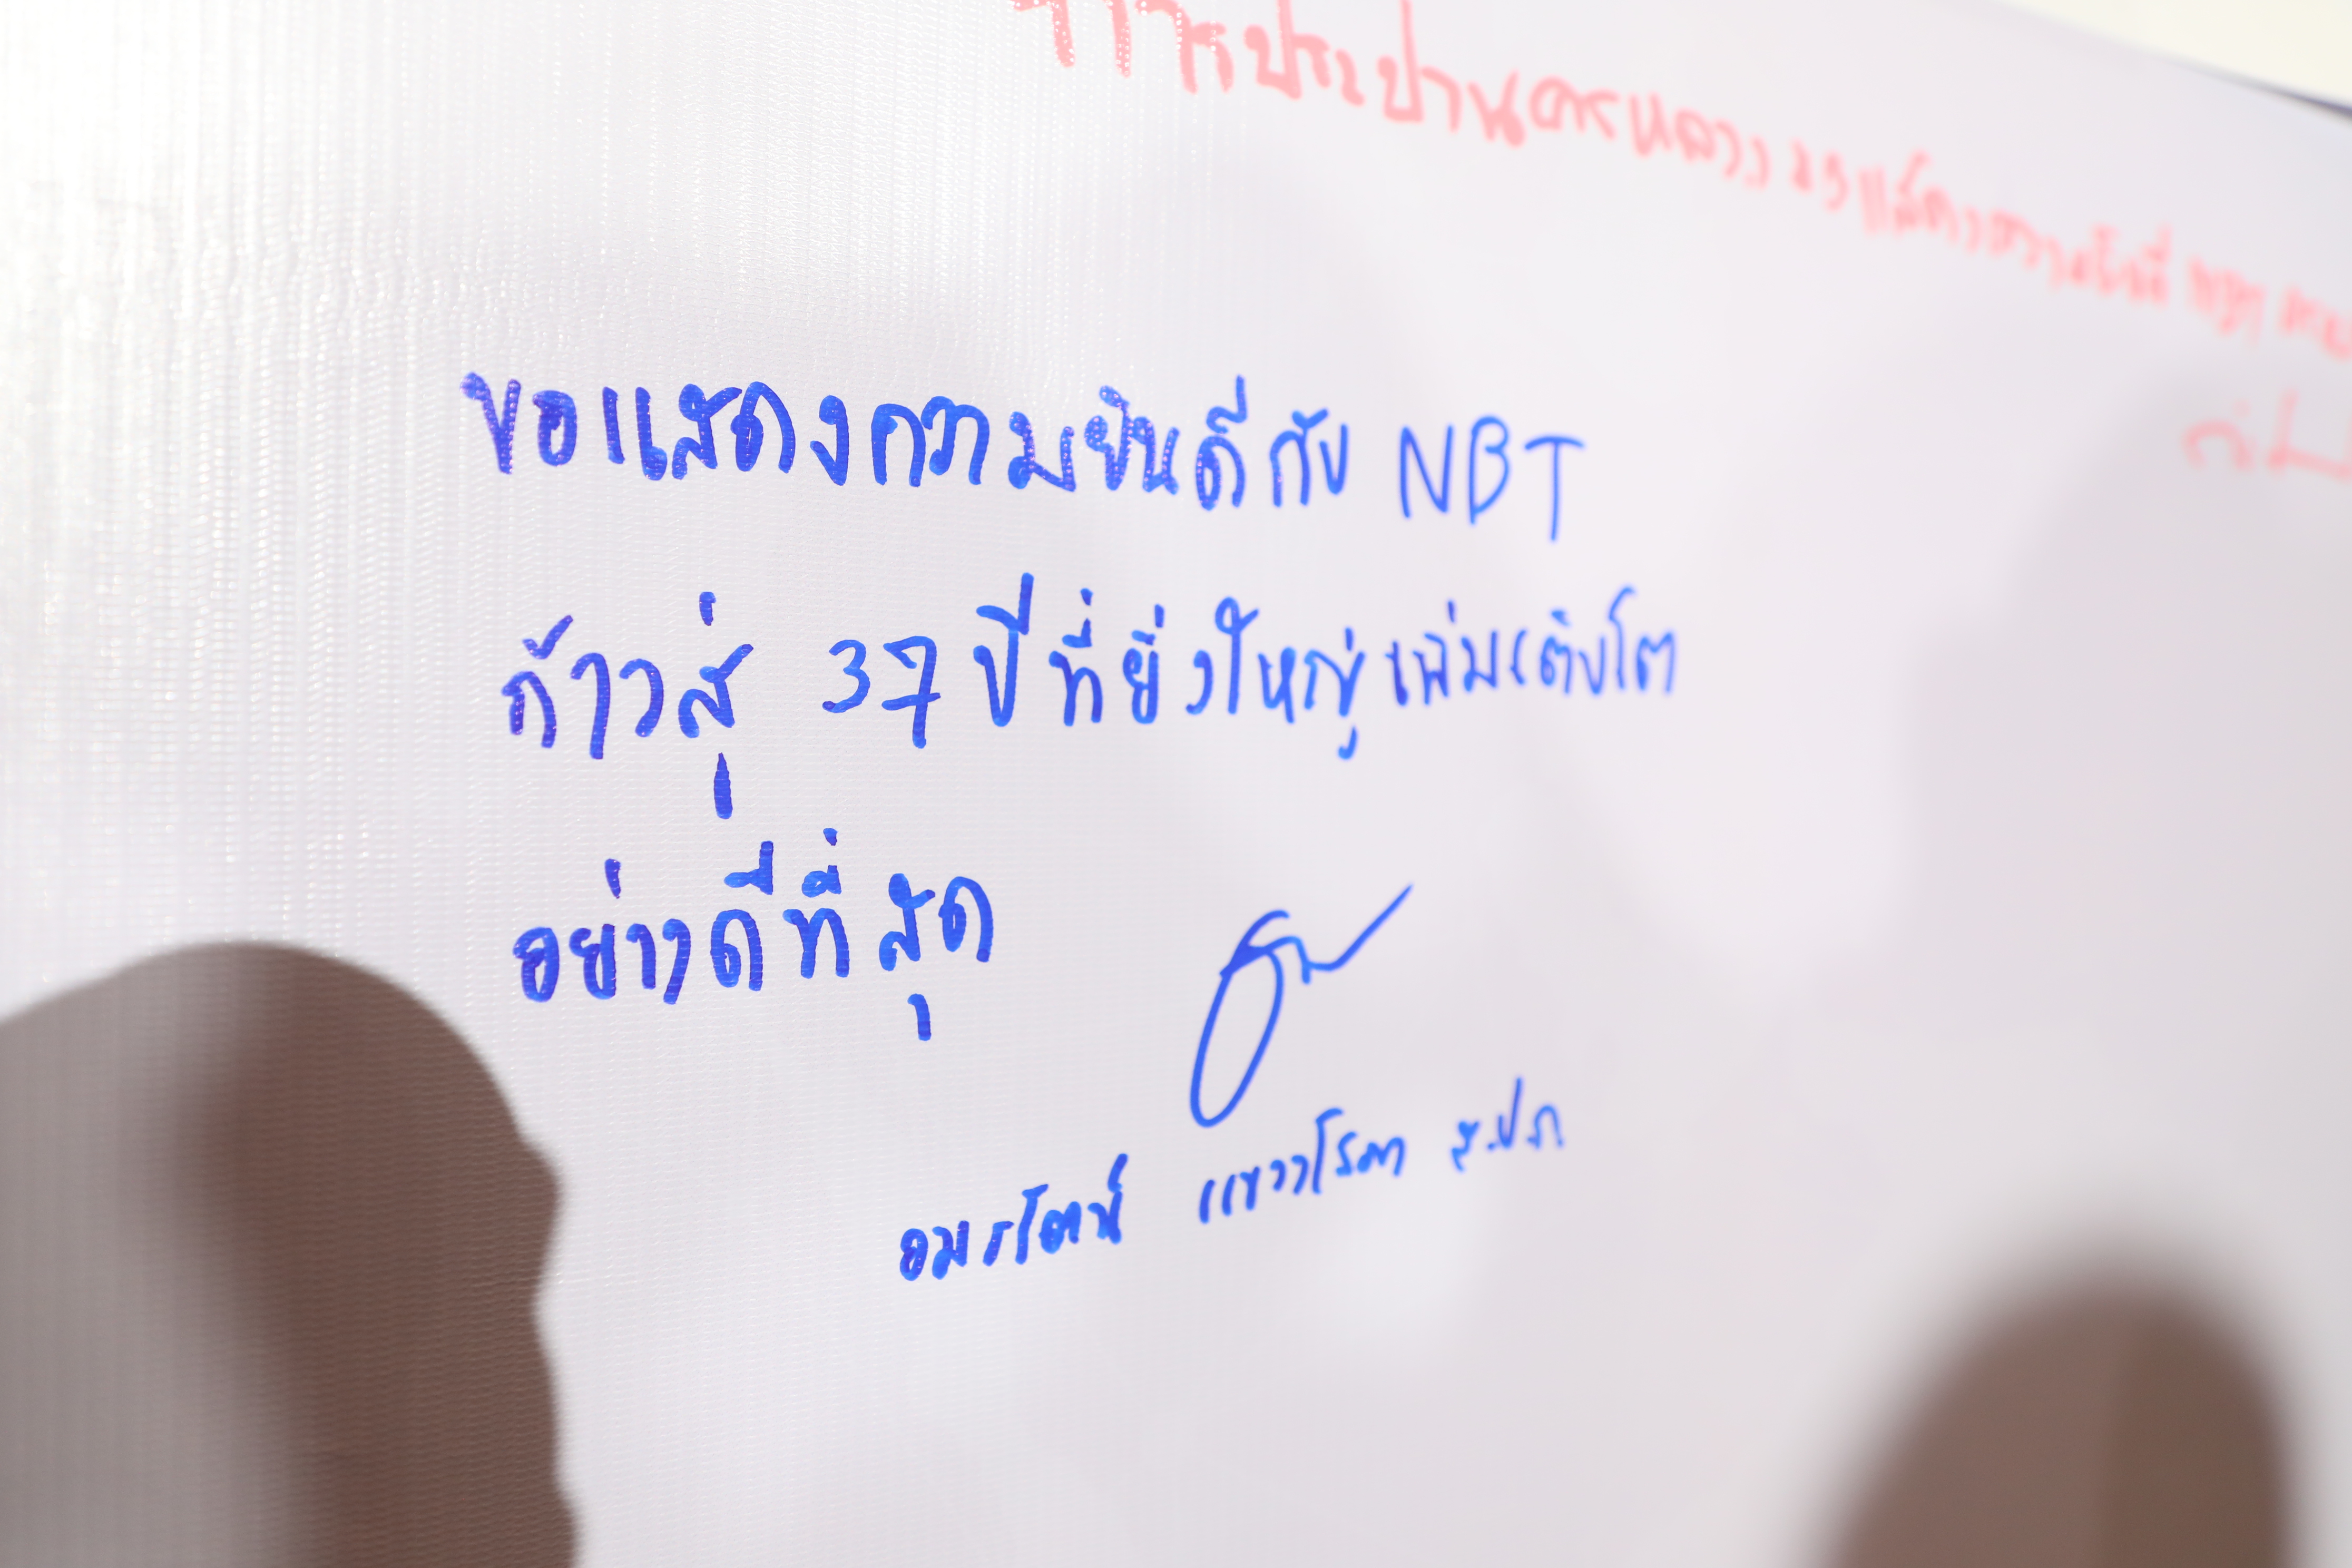 การประปานครหลวง ขอแสดงความยินดี
ขอแสดงความยินดีกับ NBT
ก้าวสู่ 37 ปี ที่ยิ่งใหญ่ เพิ่มเติบโต
อย่างดีที่สุด
อมรรัตน์